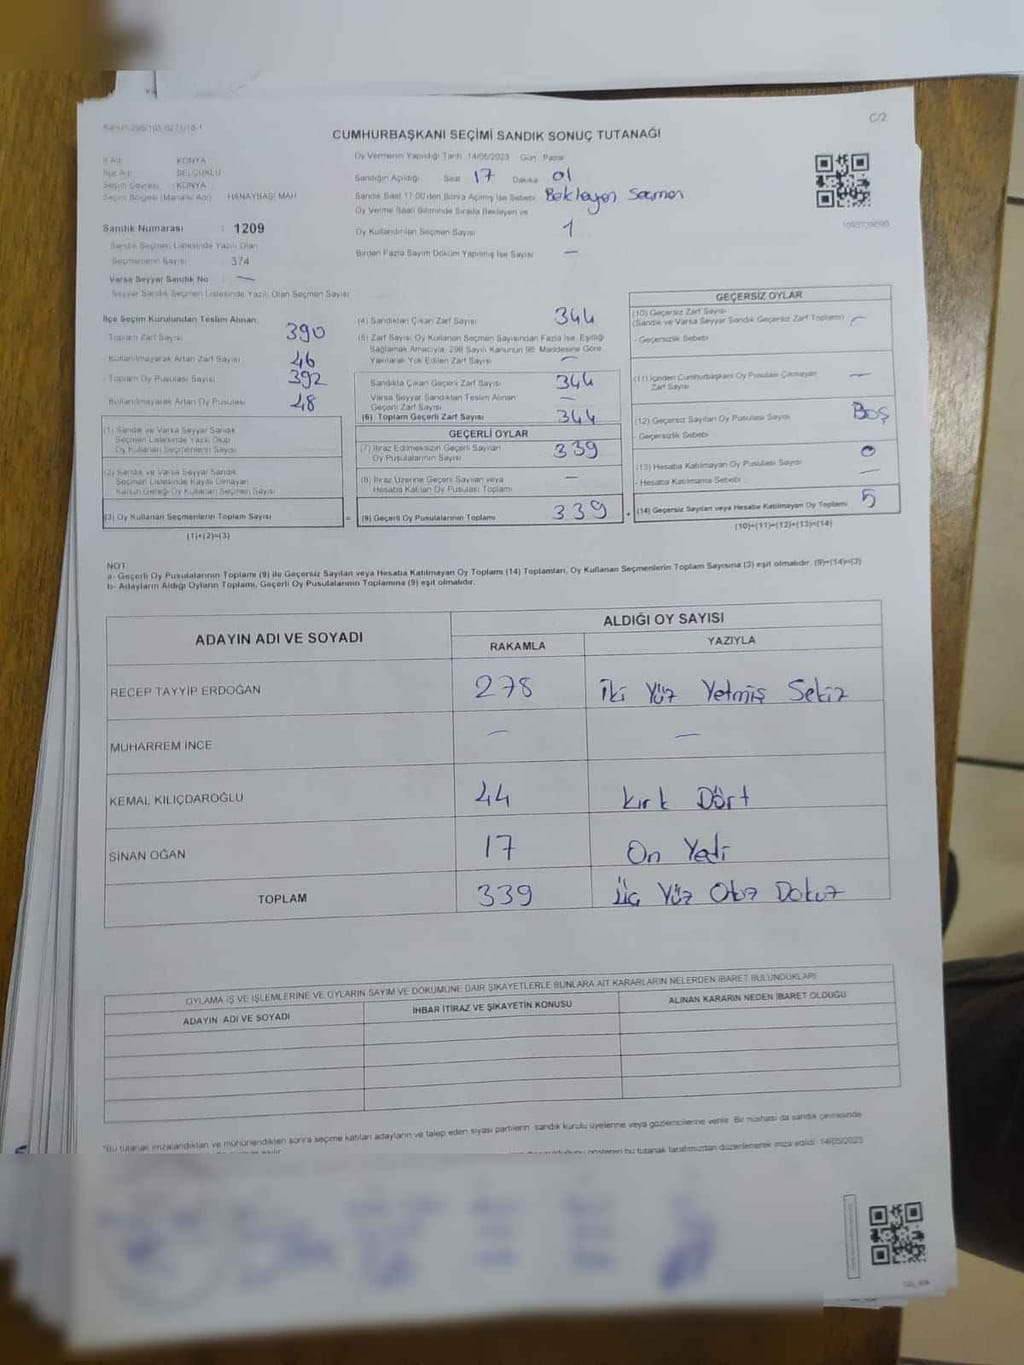 C/2
CUMHURBAŞKANI SEÇİMİ SANDIK SONUÇ TUTANAĞI
İl Adı : KONYA
İlçe Adı : SELÇUKLU
Seçim Çevresi : KONYA
Seçim Bölgesi (Mahalle Adı) : HANAYBAŞI MAH
Sandık Numarası : 1209
Sandık Seçmen Listesinde Yazılı Olan
Seçmenlerin Sayısı : 374
Varsa Seyyar Sandık No : —
Seyyar Sandık Seçmen Listesinde Yazılı Olan Seçmen Sayısı
Oy Vermenin Yapıldığı Tarih 14/05/2023 Gün Pazar
Sandığın Açıldığı Saat 17 Dakika 01
Sandık Saat 17:00'den Sonra Açılmış İse Sebebi Bekleyen Seçmen
Oy Verme Saati Bitiminde Sırada Bekleyen ve
Oy Kullandırılan Seçmen Sayısı 1
Birden Fazla Sayım Döküm Yapılmış İse Sayısı —
İlçe Seçim Kurulundan Teslim Alınan:
Toplam Zarf Sayısı 390
Kullanılmayarak Artan Zarf Sayısı 46
Toplam Oy Pusulası Sayısı 392
Kullanılmayarak Artan Oy Pusulası 48
(1) Sandık ve Varsa Seyyar Sandık
Seçmen Listesinde Yazılı Olup
Oy Kullanan Seçmenlerin Sayısı
(2) Sandık ve Varsa Seyyar Sandık
Seçmen Listesinde Kayıtlı Olmayan
Kanun Gereği Oy Kullanan Seçmen Sayısı
(3) Oy Kullanan Seçmenlerin Toplam Sayısı
(1)+(2)=(3)
(4) Sandıktan Çıkan Zarf Sayısı 344
(5) Zarf Sayısı Oy Kullanan Seçmen Sayısından Fazla İse, Eşitliği
Sağlamak Amacıyla, 298 Sayılı Kanunun 98. Maddesine Göre
Yakılarak Yok Edilen Zarf Sayısı —
Sandıkta Çıkan Geçerli Zarf Sayısı 344
Varsa Seyyar Sandıktan Teslim Alınan
Geçerli Zarf Sayısı —
(6) Toplam Geçerli Zarf Sayısı 344
GEÇERLİ OYLAR
(7) İtiraz Edilmeksizin Geçerli Sayılan
Oy Pusulalarının Sayısı 339
(8) İtiraz Üzerine Geçerli Sayılan veya
Hesaba Katılan Oy Pusulası Toplamı —
= (9) Geçerli Oy Pusulalarının Toplamı 339
GEÇERSİZ OYLAR
(10) Geçersiz Zarf Sayısı
(Sandık ve Varsa Seyyar Sandık Geçersiz Zarf Toplamı) —
- Geçersizlik Sebebi
(11) İçinden Cumhurbaşkanı Oy Pusulası Çıkmayan
Zarf Sayısı —
(12) Geçersiz Sayılan Oy Pusulası Sayısı Boş
- Geçersizlik Sebebi
(13) Hesaba Katılmayan Oy Pusulası Sayısı
- Hesaba Katılmama Sebebi —
+ (14) Geçersiz Sayılan veya Hesaba Katılmayan Oy Toplamı 5
(10)+(11)+(12)+(13)=(14)
NOT:
a- Geçerli Oy Pusulalarının Toplamı (9) ile Geçersiz Sayılan veya Hesaba Katılmayan Oy Toplamı (14) Toplamları, Oy Kullanan Seçmenlerin Toplam Sayısına (3) eşit olmalıdır. (9)+(14)=(3)
b- Adayların Aldığı Oyların Toplamı, Geçerli Oy Pusulalarının Toplamına (9) eşit olmalıdır.
ADAYIN ADI VE SOYADI
ALDIĞI OY SAYISI
RAKAMLA YAZIYLA
RECEP TAYYİP ERDOĞAN 278 İki Yüz Yetmiş Sekiz
MUHARREM İNCE — —
KEMAL KILIÇDAROĞLU 44 Kırk Dört
SİNAN OĞAN 17 On Yedi
TOPLAM 339 Üç Yüz Otuz Dokuz
OYLAMA İŞ VE İŞLEMLERİNE VE OYLARIN SAYIM VE DÖKÜMÜNE DAİR ŞİKAYETLERLE BUNLARA AİT KARARLARIN NELERDEN İBARET BULUNDUKLARI
ADAYIN ADI VE SOYADI
İHBAR İTİRAZ VE ŞİKAYETİN KONUSU
ALINAN KARARIN NEDEN İBARET OLDUĞU
"Bu tutanak imzalandıktan ve mühürlendikten sonra seçime katılan adayların ve talep eden siyasi partilerin sandık kurulu üyelerine veya gözlemcilerine verilir. Bir nüshası da sandık çevresinde
bu tutanak tarafımızdan düzenlenerek imza edildi. 14/05/2023